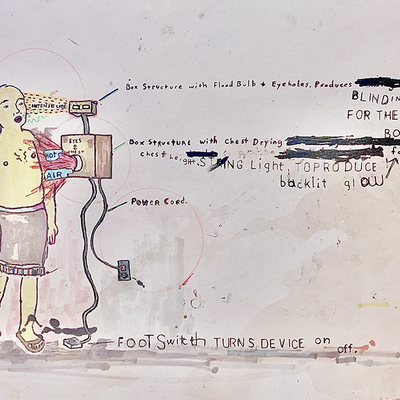 INTENSE LIGHT
Box Structure with Flood Bulb + Eyeholes. Produces
BLINDIN
FOR THE
BO
EYES
HOT
AIR
Box Structure with Chest Drying
chest height. STRING Light TO PRODUCE
backlit glow
POWER CORD.
FOOT Switch TURNS DEVICE on
off.